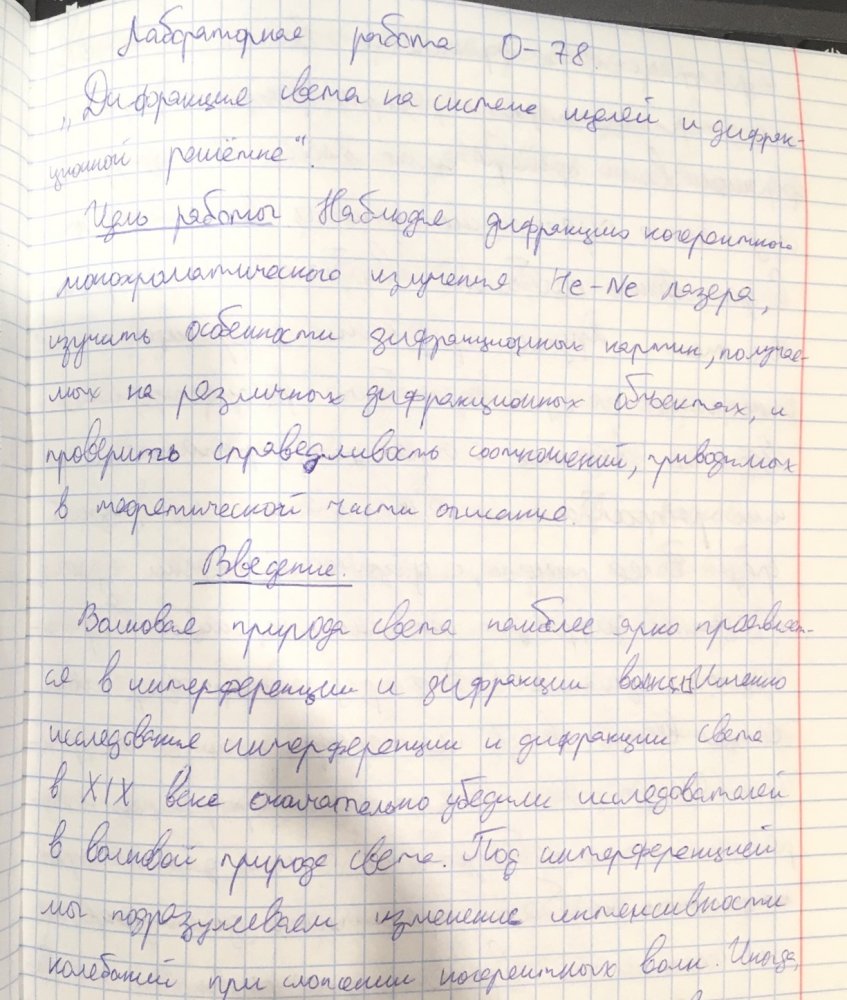 Лабораторная работа О-78.
„Дифракция света на системе щелей и дифрак-
ционной решётке“.
Цель работы Наблюдая дифракцию когерентного
монохроматического излучения He-Ne лазера,
изучить особенности дифракционных картин, получае-
мых на различных дифракционных объектах, и
проверить справедливость соотношений, приводимых
в теоретической части описания.
Введение.
Волновая природа света наиболее ярко проявляет-
ся в интерференции и дифракции волн. Именно
исследования интерференции и дифракции света
в XIX веке окончательно убедили исследователей
в волновой природе света. Под интерференцией
мы подразумеваем изменение интенсивности
колебаний при сложении когерентных волн. Иногда,